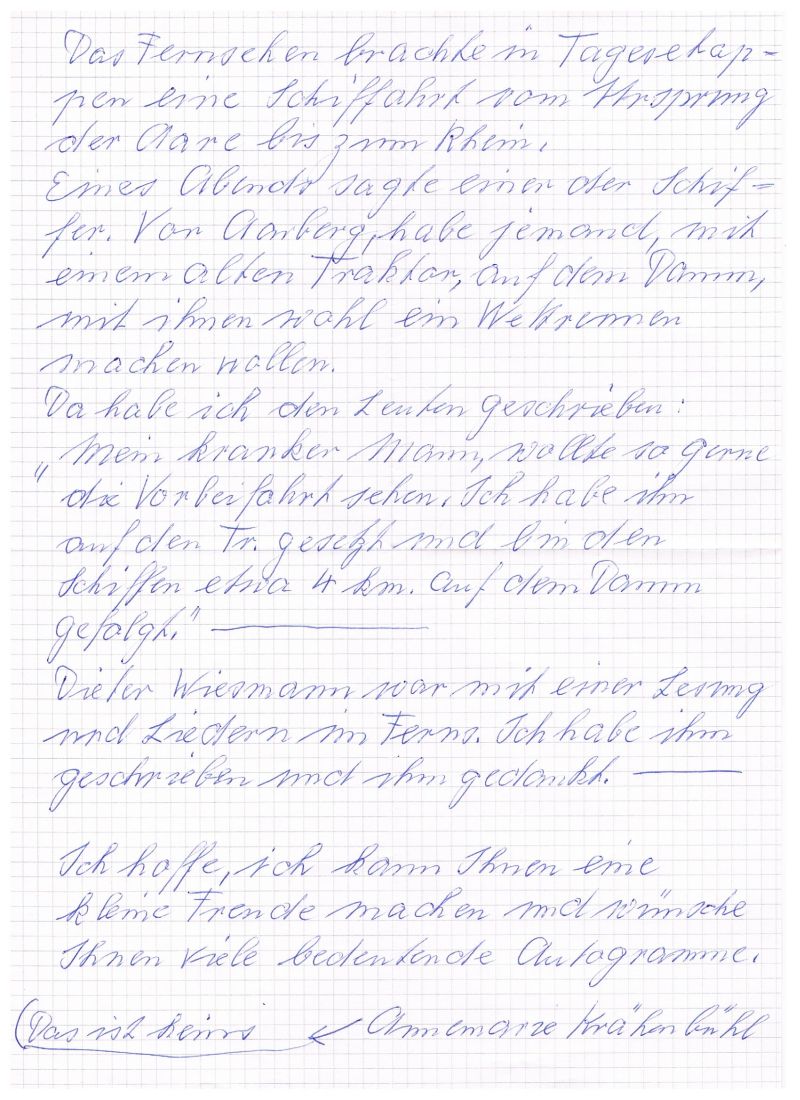 Das Fernsehen brachte in Tagesetap=
pen eine Schiffahrt vom Ursprung
der Aare bis zum Rhein.
Eines Abends sagte einer der Schif=
fer. Vor Aarberg, habe jemand, mit
einem alten Traktor, auf dem Damm,
mit ihnen wohl ein Wettrennen
machen wollen.
Da habe ich den Leuten geschrieben:
„Mein kranker Mann, wollte so gerne
die Vorbeifahrt sehen. Ich habe ihn
auf den Tr. gesetzt und bin den
Schiffen etwa 4 km. auf dem Damm
gefolgt."
Dieter Wiesmann war mit einer Lesung
und Liedern im Ferns. Ich habe ihm
geschrieben und ihm gedankt.
Ich hoffe, ich kann Ihnen eine
kleine Freude machen und wünsche
Ihnen viele bedeutende Autogramme.
(Das ist keins ← Annemarie Krähenbühl